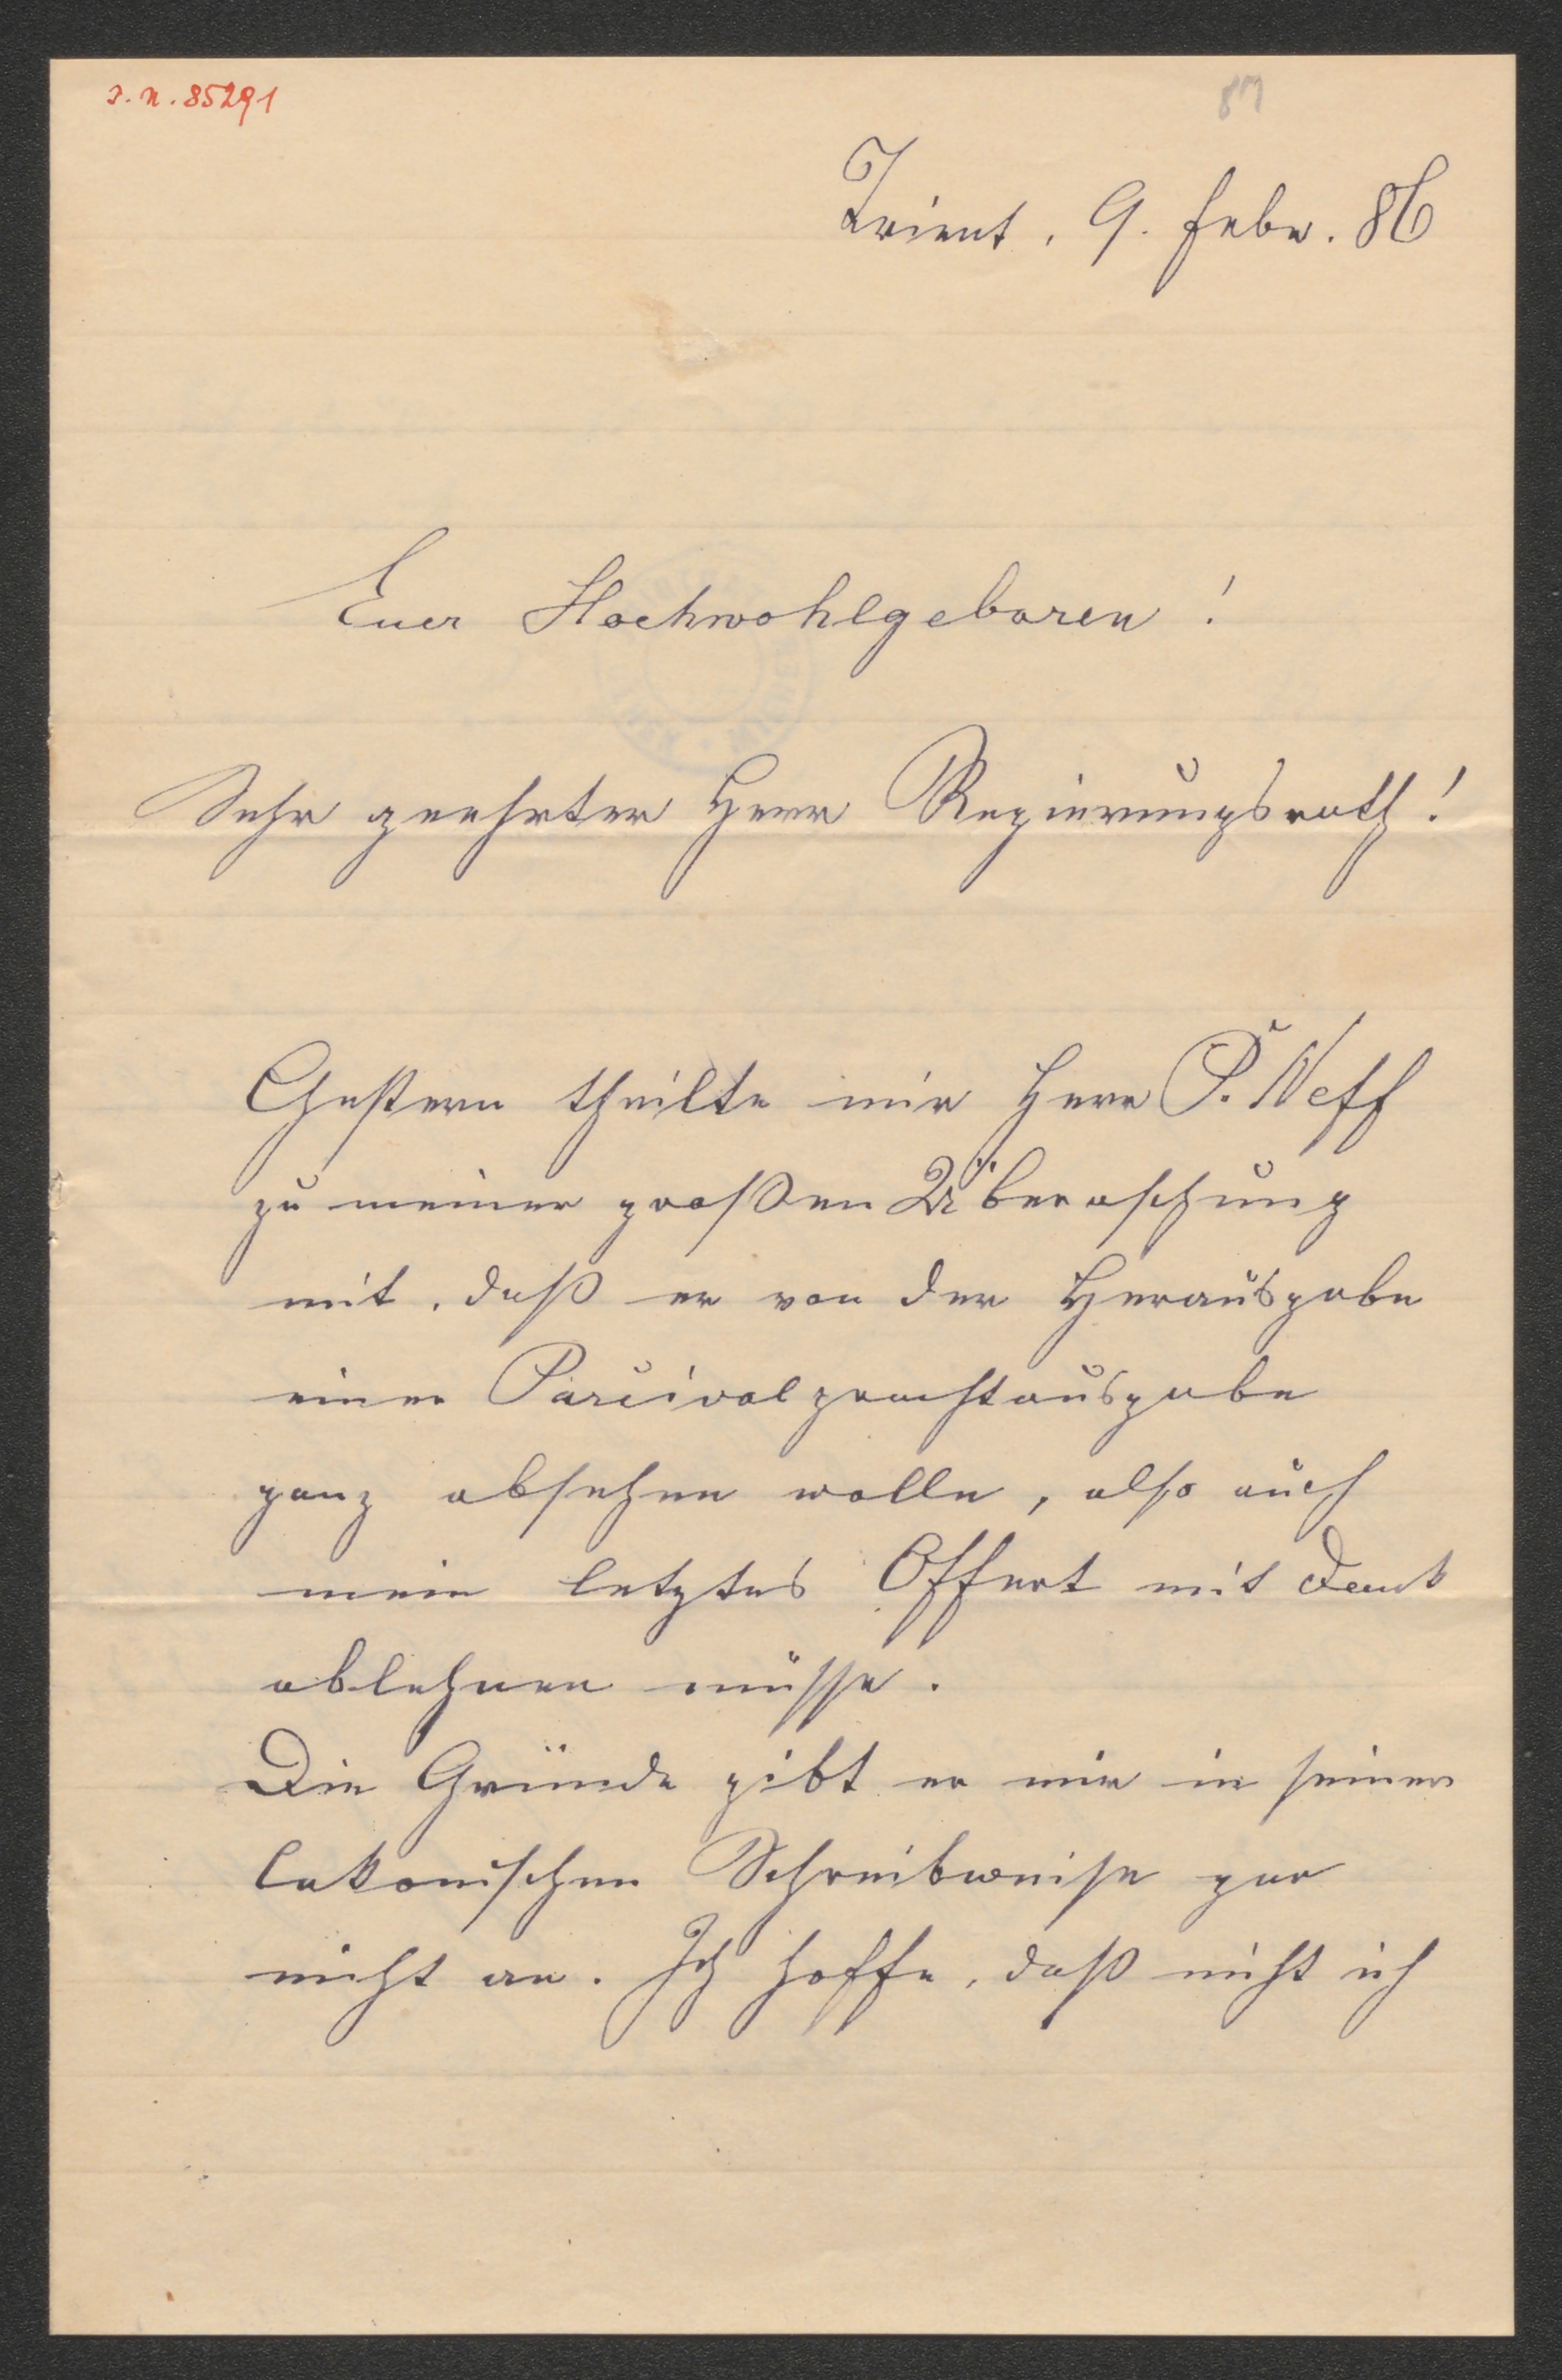 I. N. 85291
87
Trient, 9. Febr. 86
Euer Hochwohlgeboren!
Sehr geehrter Herr Regierungsrath!
Gestern theilte mir Herr P. Neff
zu meiner großen Überaschung
mit, daß er von der Herausgabe
einer Parcivalprachtausgabe
ganz absehen wolle, also auch
mein letztes Offert mit Dank
ablehnen müsse.
Die Gründe gibt er mir in seiner
lakonischen Schreibweise gar
nicht an. Ich hoffe, daß nicht ich